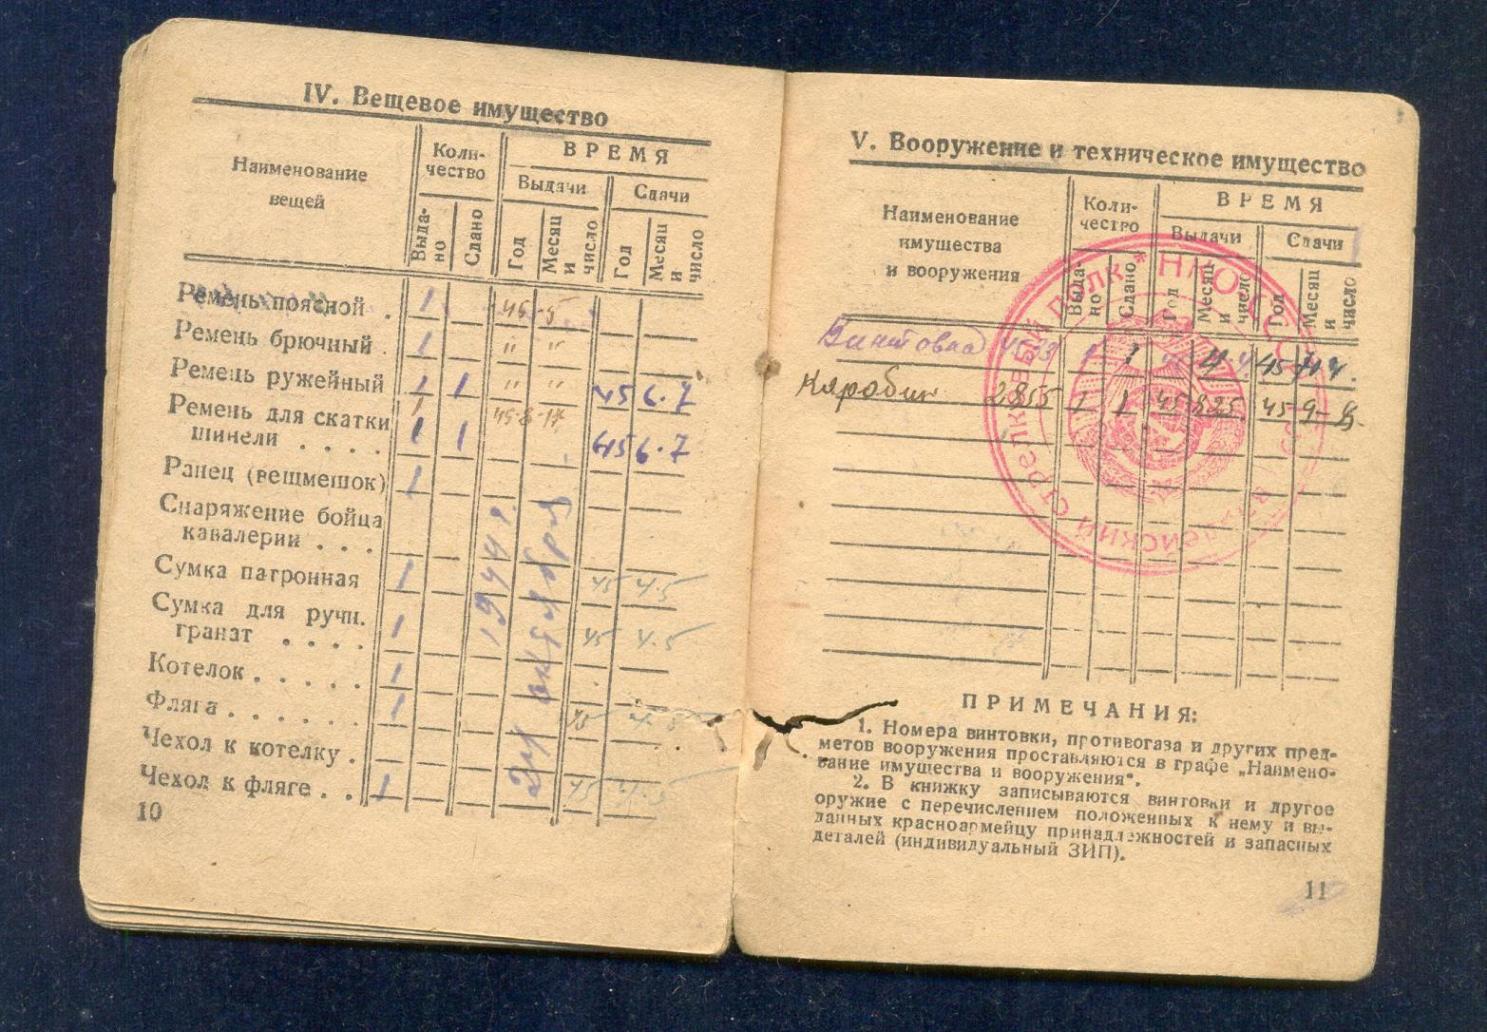 IV. Вещевое имущество
Наименование вещей
Коли-
чество
ВРЕМЯ
Выдачи
Сдачи
Выда-
но
Сдано
Год
Месяц и число
Год
Месяц и число
Ремень поясной . 1 45 5
Ремень брючный . 1 " "
Ремень ружейный 1 1 " " 45 6.7
Ремень для скатки 1 45.8.17
шинели . . . . 1 1 45 6.7
Ранец (вещмешок) 1
Снаряжение бойца
кавалерии . . .
Сумка патронная 1 45 4.5
Сумка для ручн.
гранат . . . . 1 45 4.5
Котелок . . . . . 1
Фляга . . . . . . 1 45
Чехол к котелку .
Чехол к фляге . . 1 45
1944 г.
24 октября
10
V. Вооружение и техническое имущество
Наименование
имущества
и вооружения
Коли-
чество
ВРЕМЯ
Выдачи
Сдачи
Выда-
но
Сдано
Год
Месяц и число
Год
Месяц и число
Винтовка 1 1 4 45
Карабин 2855 1 1 45 825 45 9-
СТРЕЛКОВЫЙ ПОЛК * НКО СССР
ПРИМЕЧАНИЯ:
1. Номера винтовки, противогаза и других пред-
метов вооружения проставляются в графе „Наимено-
вание имущества и вооружения".
2. В книжку записываются винтовки и другое
оружие с перечислением положенных к нему и вы-
данных красноармейцу принадлежностей и запасных
деталей (индивидуальный ЗИП).
11